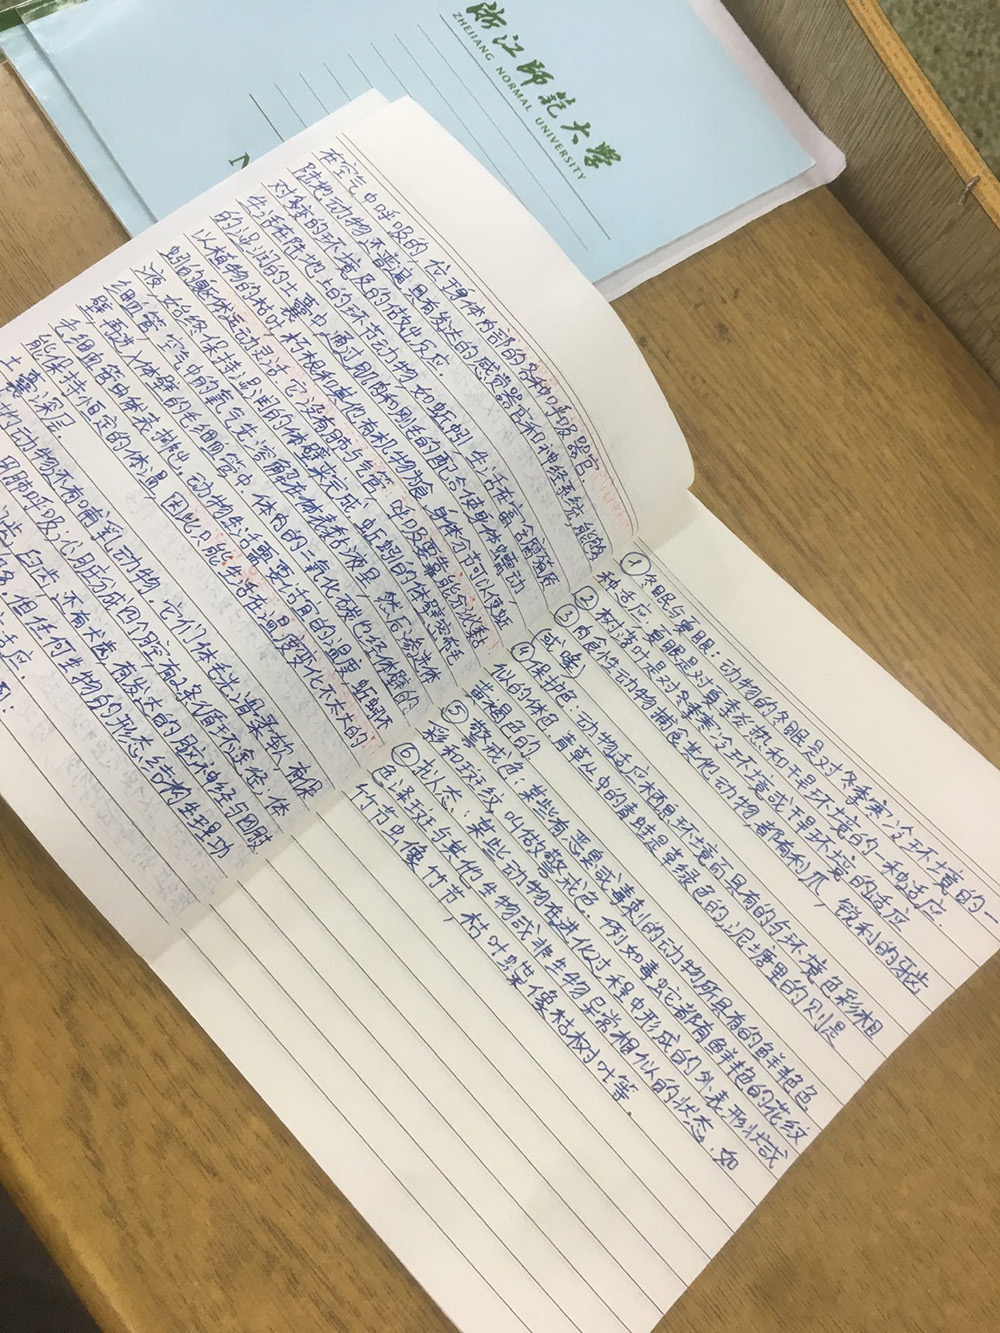 浙江师范大学
ZHEJIANG NORMAL UNIVERSITY
N
在空气中呼吸的,位于身体内部的各种呼吸器官.
陆地动物还普遍具有发达的感觉器官和神经系统,能够
对多变的环境及时做出反应.
生活在陆地上的环节动物如蚯蚓,生活在富含腐殖质
的湿润的土壤中,通过肌肉和刚毛的配合使身体蠕动,
以植物的枯叶,朽根和其他有机物为食,身体分节可以使蚯
蚓的躯体运动灵活.它没有肺与气管,呼吸要靠能分泌黏
液,始终保持湿润的体壁来完成,蚯蚓的体壁密布毛
细血管,空气中的氧气先溶解在体表黏液里,然后渗进体
壁,再进入体壁的毛细血管中.体内的二氧化碳也经体壁的
毛细血管由体表排出.动物生活需要适宜的温度,蚯蚓不
能保持恒定的体温,因此只能生活在温度变化不太大的
土壤深层.
的动物还有哺乳动物,它们体表光滑柔软,有保
用肺呼吸,心脏分成四个腔,有2条循环途径,体
齿,臼齿,还有犬齿,有发达的脑神经与四肢
多,但任何生物的形态,结构,生理功
适应.
①冬眠与夏眠:动物的冬眠是对冬季寒冷环境的一
种适应;夏眠是对夏季炎热和干旱环境的一种适应.
②树落叶是对冬季寒冷环境或干旱环境的适应
③肉食性动物捕食其他动物,都有利爪,锐利的牙齿
或喙
④保护色:动物适应栖息环境而具有的与环境色彩相
似的体色,青草丛中的青蛙是草绿色的,泥塘里的则是
黄褐色的
⑤警戒色:某些有恶臭或毒刺的动物所具有的鲜艳色
彩和斑纹,叫做警戒色.例如毒蛇都有鲜艳的花纹
⑥拟态:某些动物在进化过程中形成的外表形状或
色泽斑与其他生物或非生物异常相似的状态,如
竹节虫像竹节,枯叶蝶像枯树叶等.